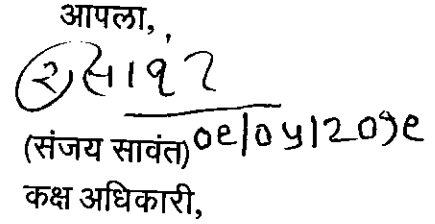 आपला,
(संजय सावंत) ०९/०५/२०१९
कक्ष अधिकारी,